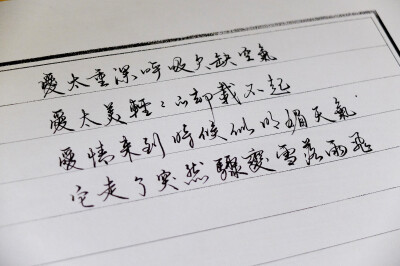 愛太重深呼吸欠缺空氣
愛太美輕〻心卻載不起
愛情來到時候似明媚天氣
它走了突然驟變雪落雨飛